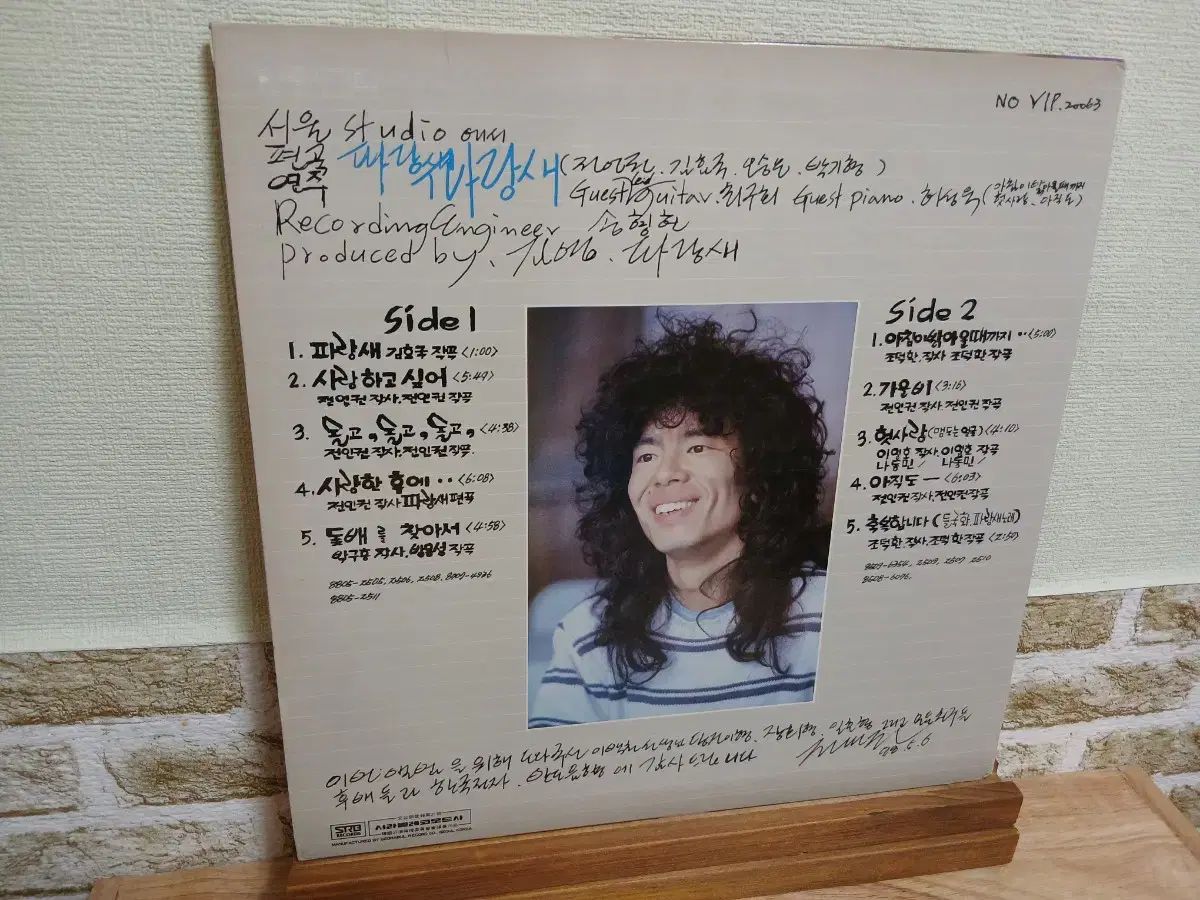 NO VIP.20063
서울 studio 에서
편곡 연주 파랑새파랑새 (전인권. 김효국. 오승은. 박기형)
Guest guitar. 최구희 Guest piano. 하성욱 (아침이 밝아올때까지
헛사랑. 아직도)
Recording Engineer 송형헌
Produced by. 김영. 파랑새
Side 1
1. 파랑새 김효국 작곡 <1:00>
2. 사랑하고 싶어 <5:49>
전인권 작사. 전인권 작곡
3. 돌고, 돌고, 돌고, <4:38>
전인권 작사. 전인권 작곡.
4. 사랑한 후에‥ <6:08>
전인권 작사 파랑새 편곡
5. 돛배를 찾아서 <4:58>
작사, 작곡
8805-2505, 2506, 2508, 8007-4826
8805-2511
Side 2
1. 아침이 밝아 올때까지‥ <5:00>
조덕환.작사 조덕환 작곡
2. 가을비 <3:16>
전인권 작사 전인권 작곡
3. 헛사랑 (맴도는 얼굴) <4:10>
이영호 작사. 이영호 작곡
나동민 / 나동민 /
4. 아직도 ー <6:03>
전인권 작사. 전인권 작곡
5. 축복합니다 (들국화. 파랑새노래)
조덕환.작사. 조덕환 작곡 <2:50>
8609-6254, 2509, 2507 2510
8508-6096.
을 위해 도와주신 그리고 모든
후배들과 한국전자. 에 감사드립니다
88. 5. 6
SRB
RECORDS
서라벌레코드사
MANUFACTURED BY SEORABUL RECORD CO., SEOUL, KOREA.